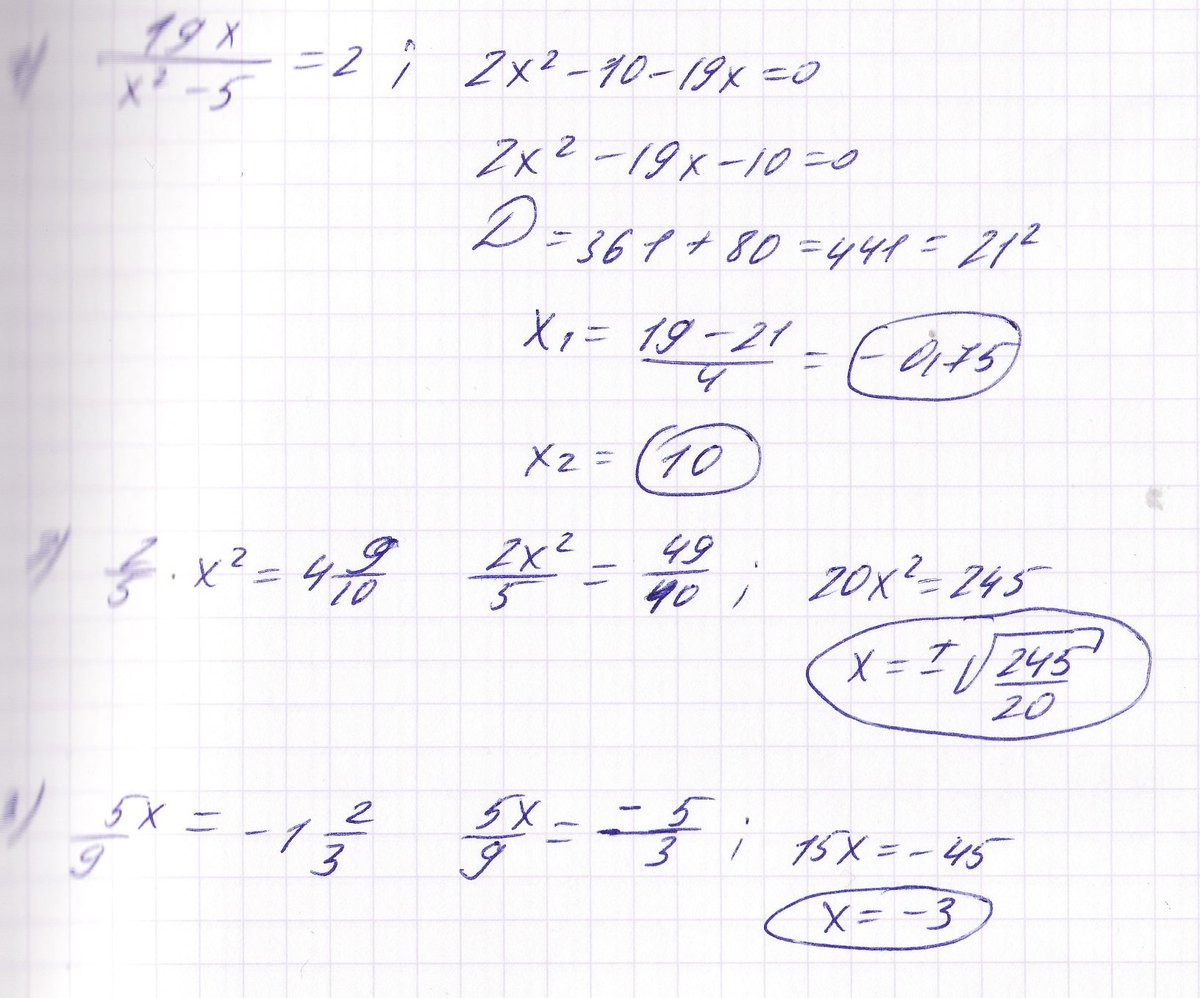 19x/(x² - 5) = 2 ; 2x² - 10 - 19x = 0
2x² - 19x - 10 = 0
D = 361 + 80 = 441 = 21²
x₁ = (19 - 21)/4 = - 0,75
x₂ = 10
2/5 · x² = 4 9/10 2x²/5 = 49/10 ; 20x² = 245
x = ±√(245/20)
5/9 x = -1 2/3 5x/9 = -5/3 ; 15x = -45
x = -3